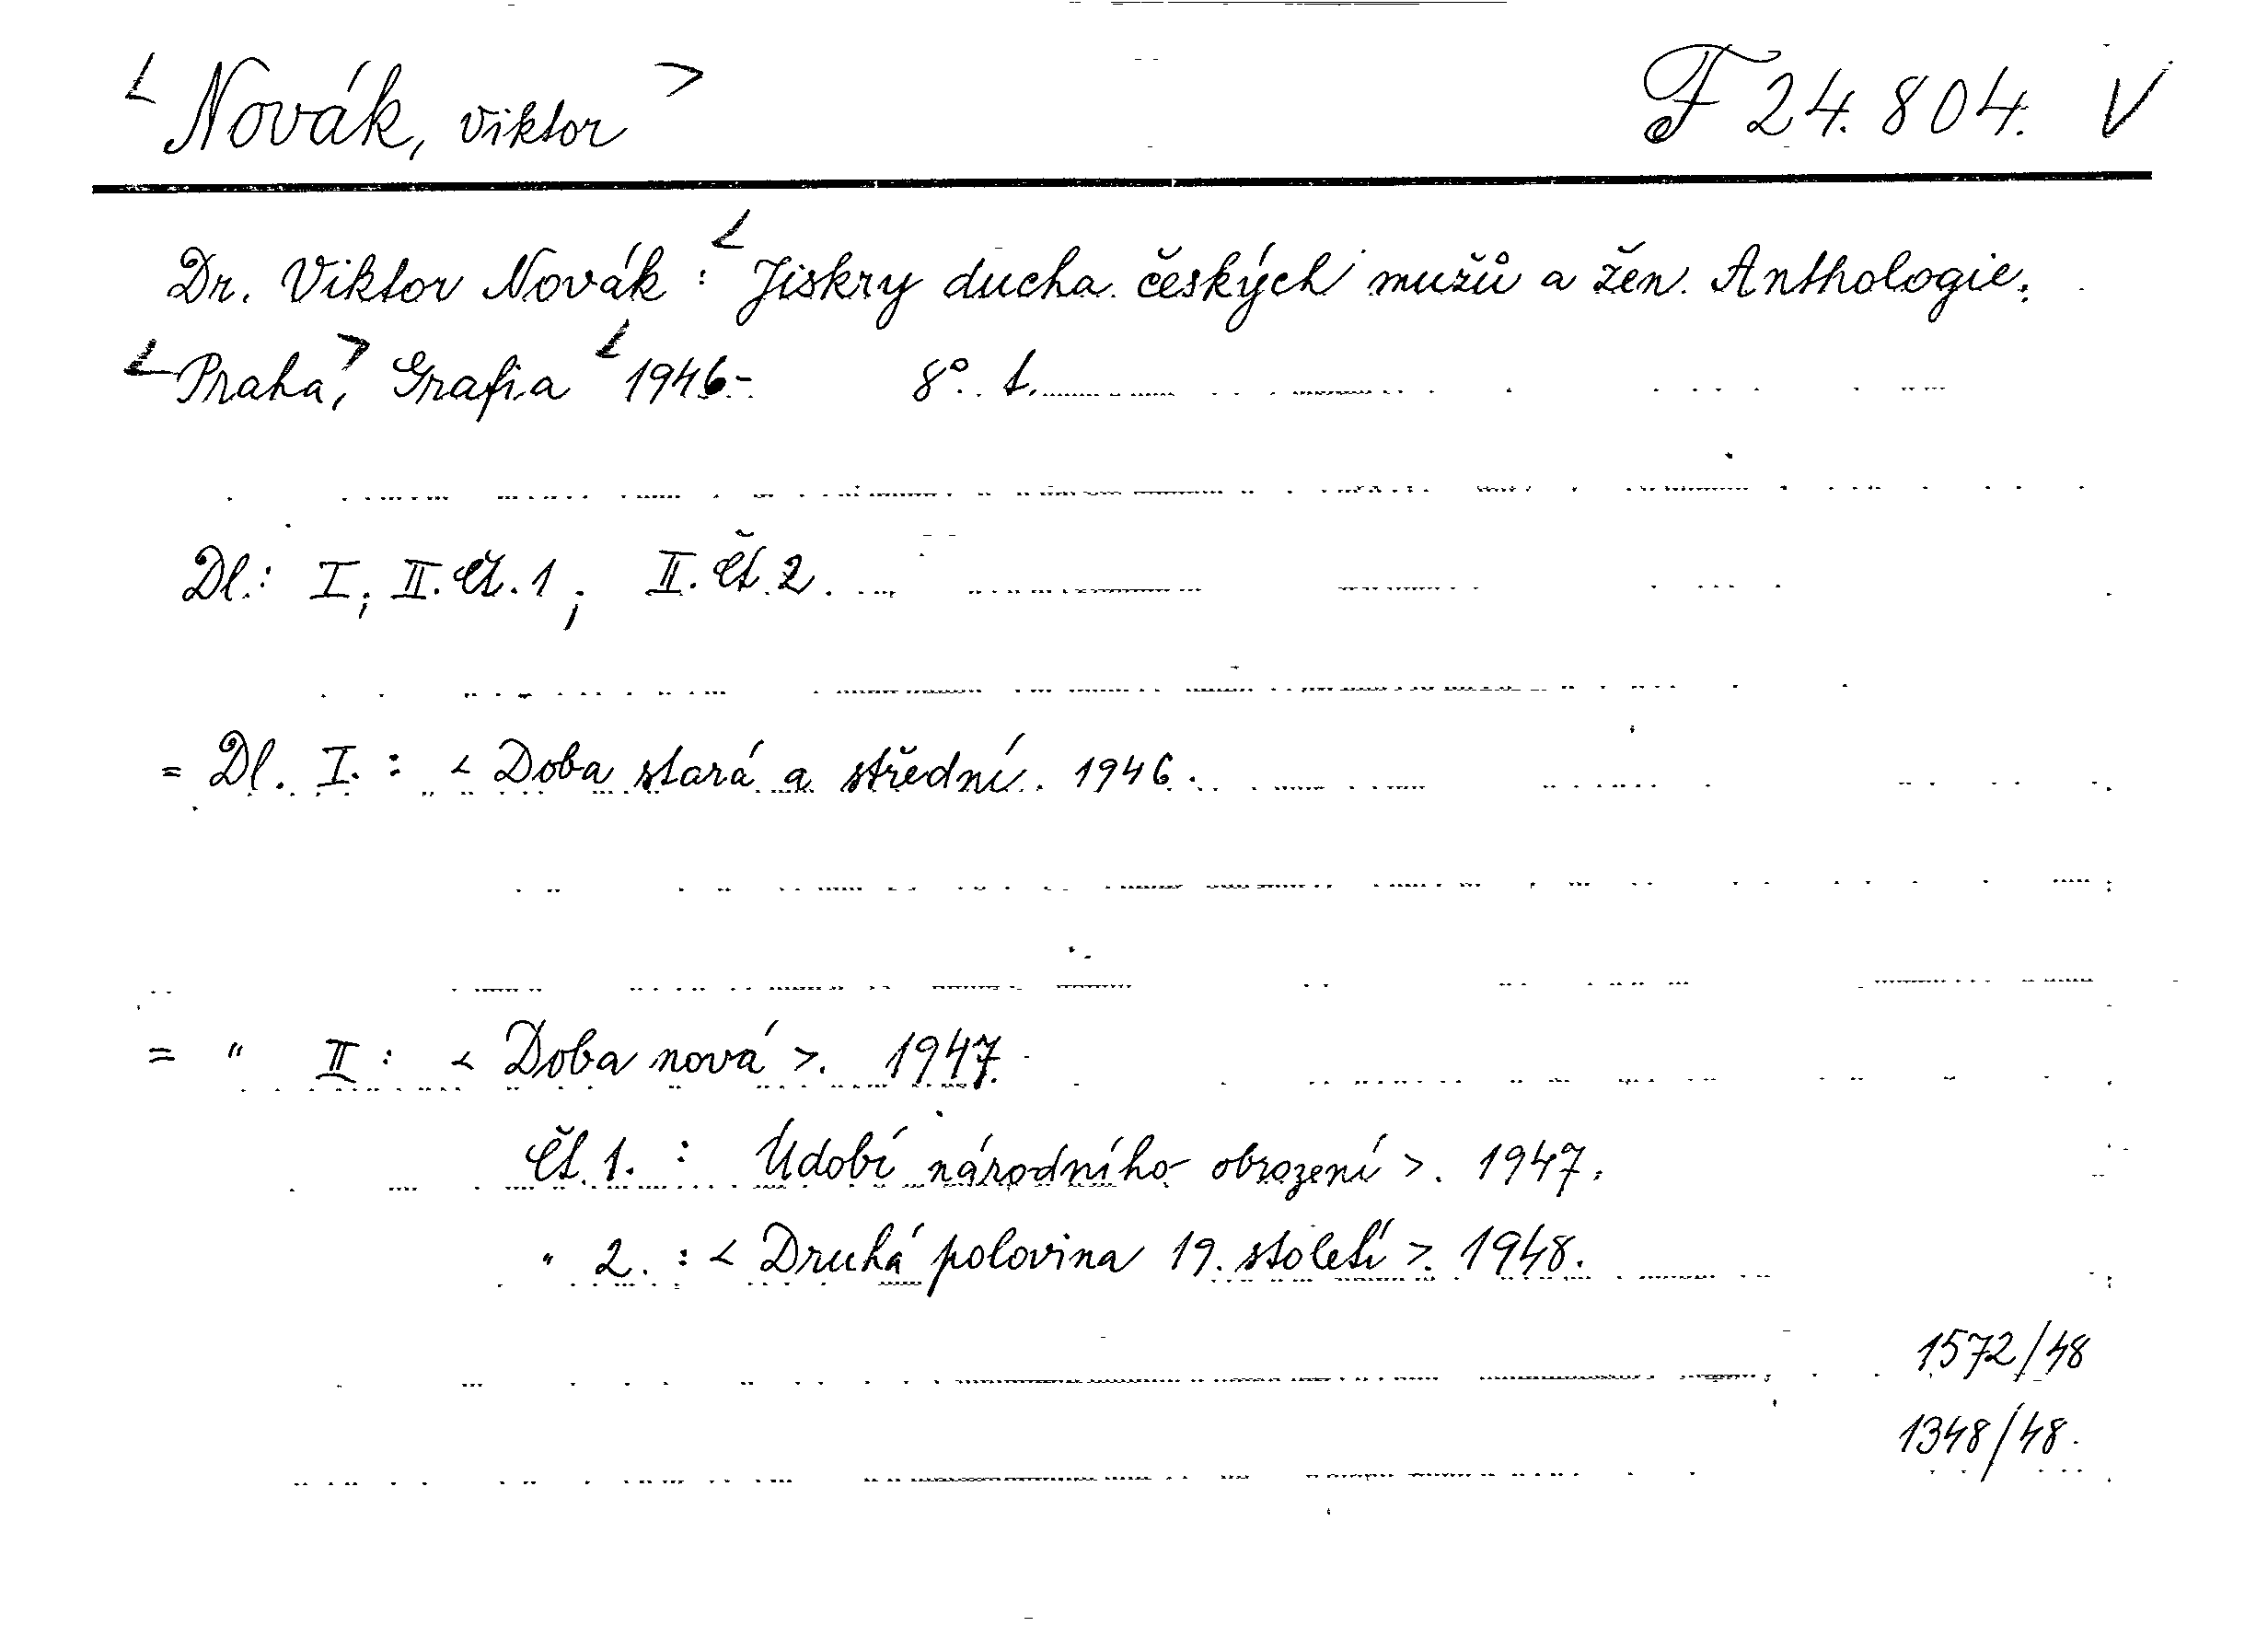 < Novák, Viktor > F 24.804. V
Dr. Viktor Novák : < Jiskry ducha českých mužů a žen. Anthologie.
< Praha, > Grafia < 1946- 8°. t.
Dl.: I, II. čt. 1, II. čt. 2.
= Dl. I. : < Doba stará a střední. 1946.
= " II : < Doba nová >. 1947.
čt. 1. : Údobí národního obrození >. 1947.
" 2. : < Druhá polovina 19. století >. 1948.
1572/48
1348/48.